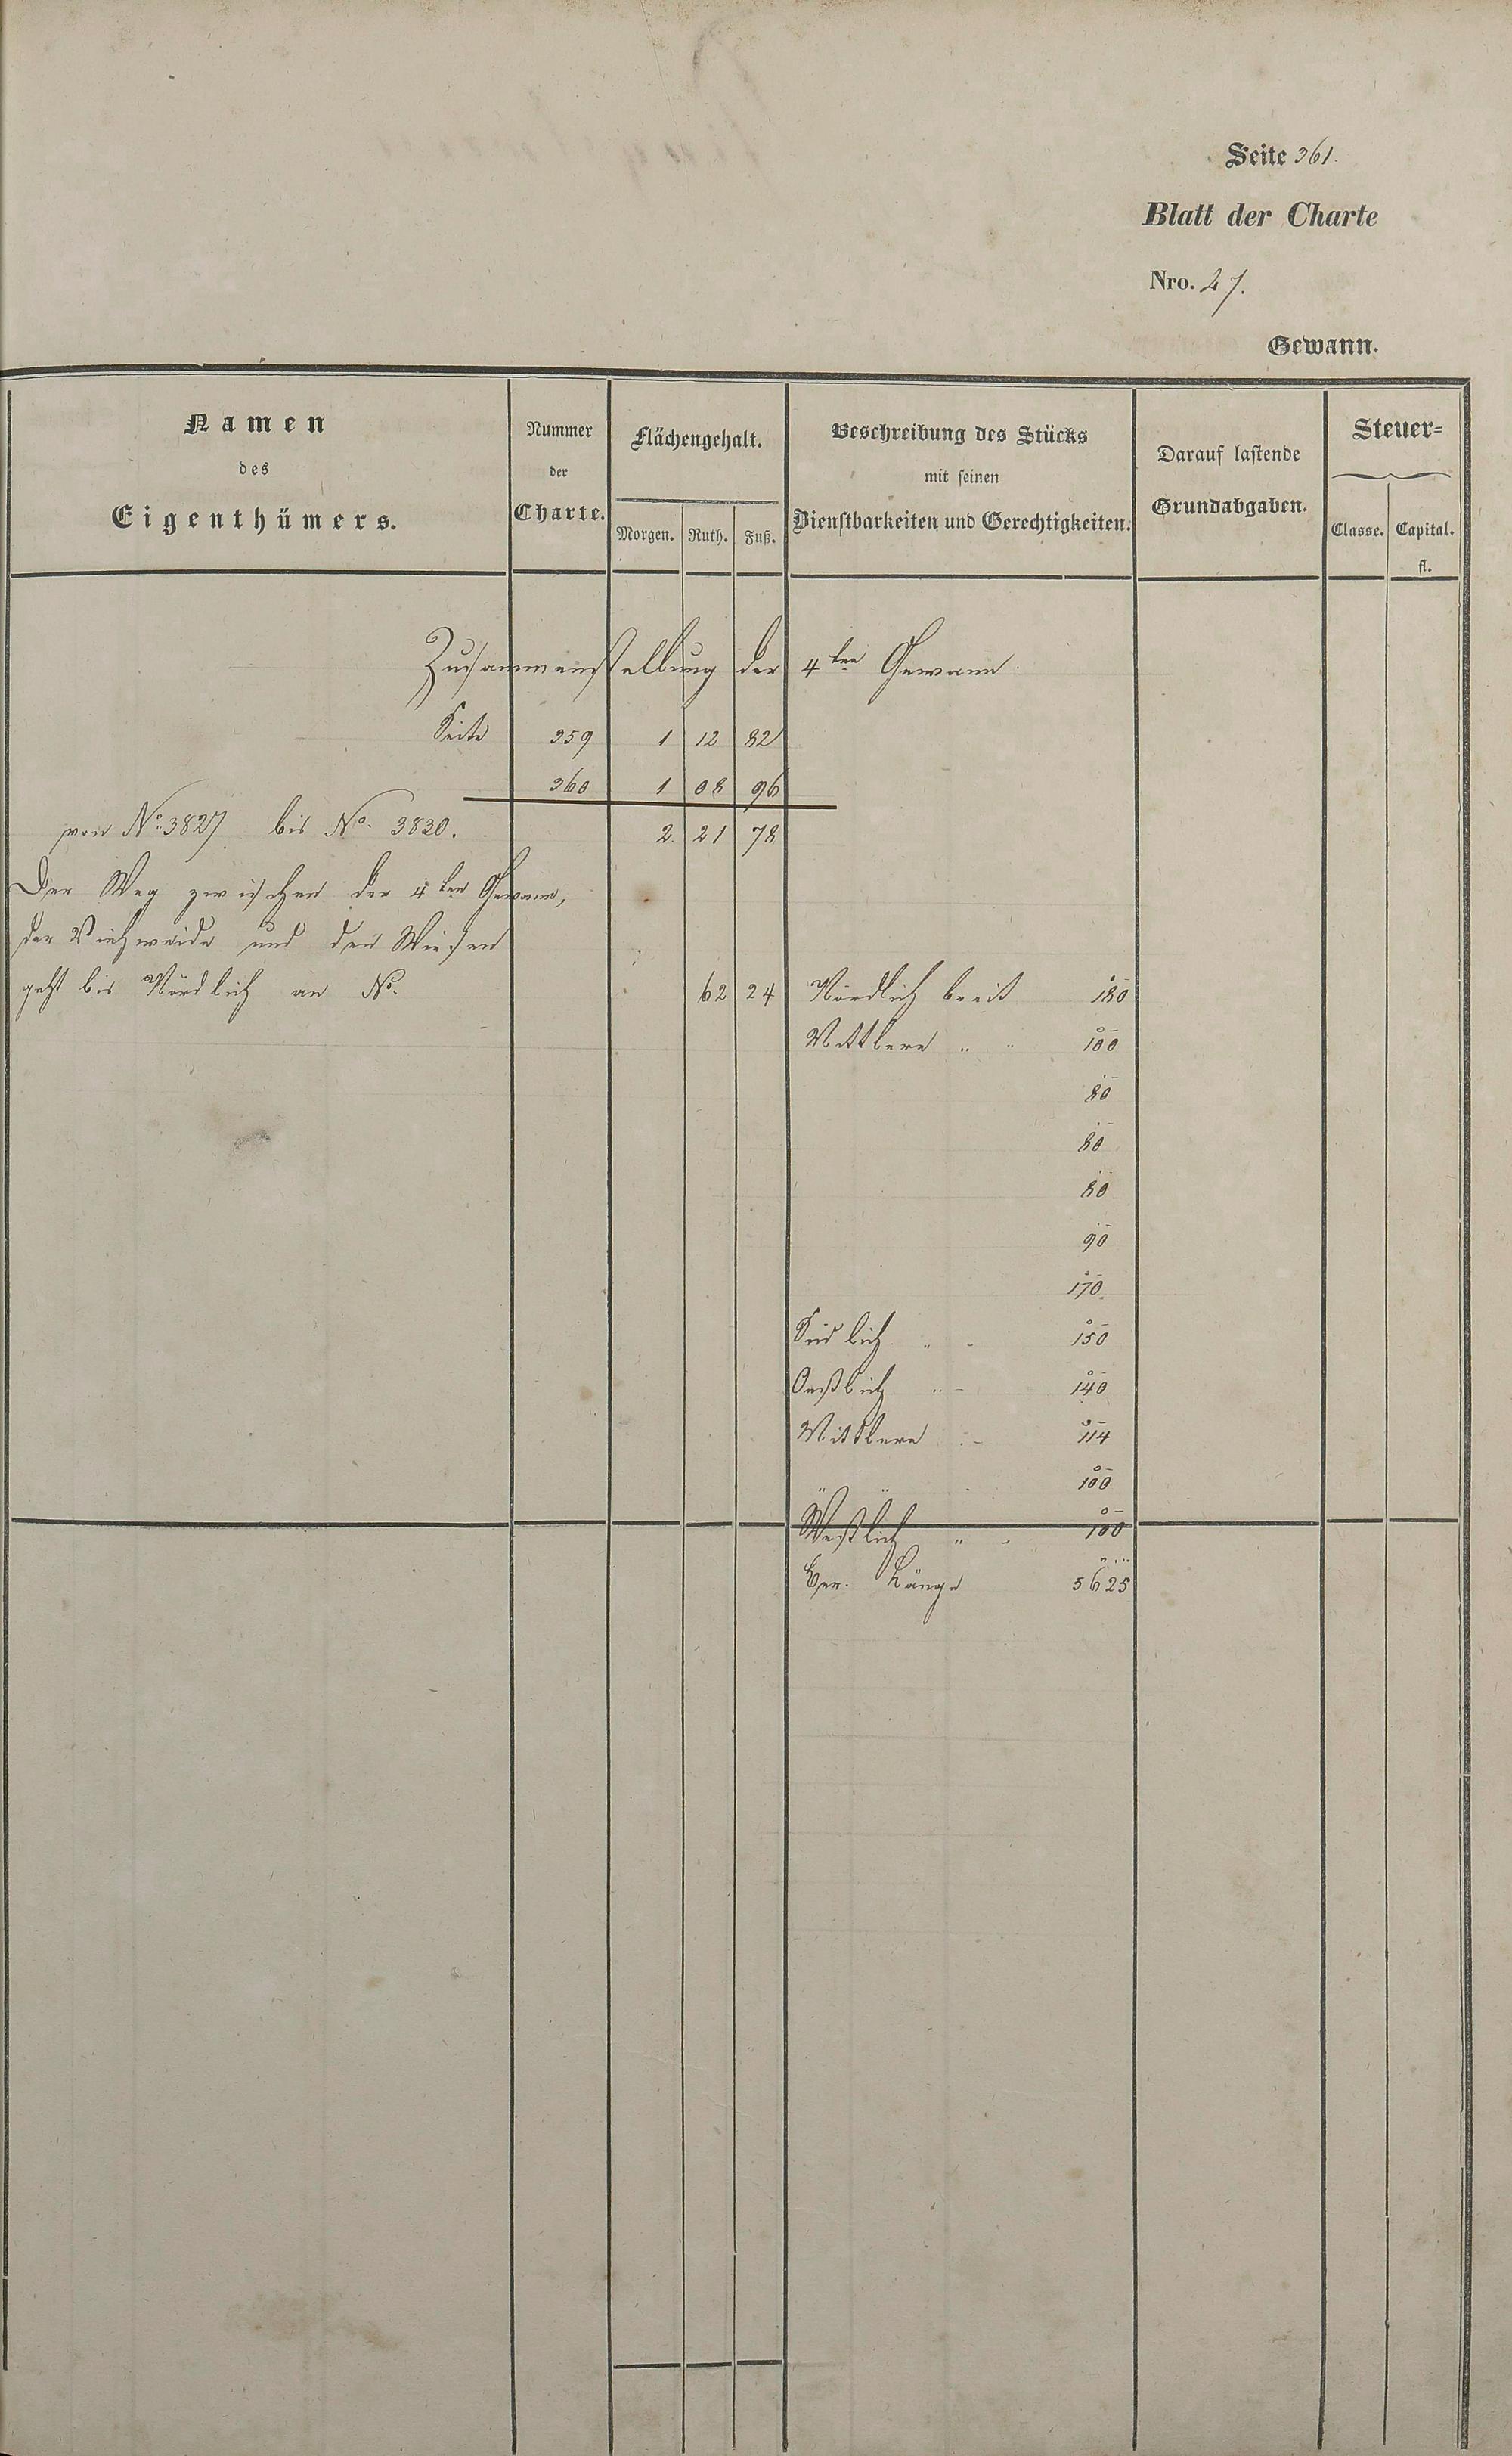 Seite 361.
Blatt der Charte
Nro. 27.
Gewann.
Namen
des
Eigenthümers.
Nummer
der
Charte.
Flächengehalt.
Morgen. Ruth. Fuß.
Beschreibung des Stücks
mit seinen
Dienstbarkeiten und Gerechtigkeiten.
Darauf lastende
Grundabgaben.
Steuer=
Classe. Capital.
fl.
Zusammenstellung der 4ten Gewann.
Seite 359 1 12 82
360 1 08 96
von No. 3827 bis No. 3830. 2. 21 78
Der Weg zwischen der 4ten Gewann,
der Viehweide und den Wiesen
geht bis Nördlich an No. 62 24 Nördlich breit 180
Mittlere " " 100
80
80
80
90
170.
Südlich " " 150
Oestlich " " 140
Mittlere " 114
" " 100
Westlich " " 100
Ger. Länge 5625